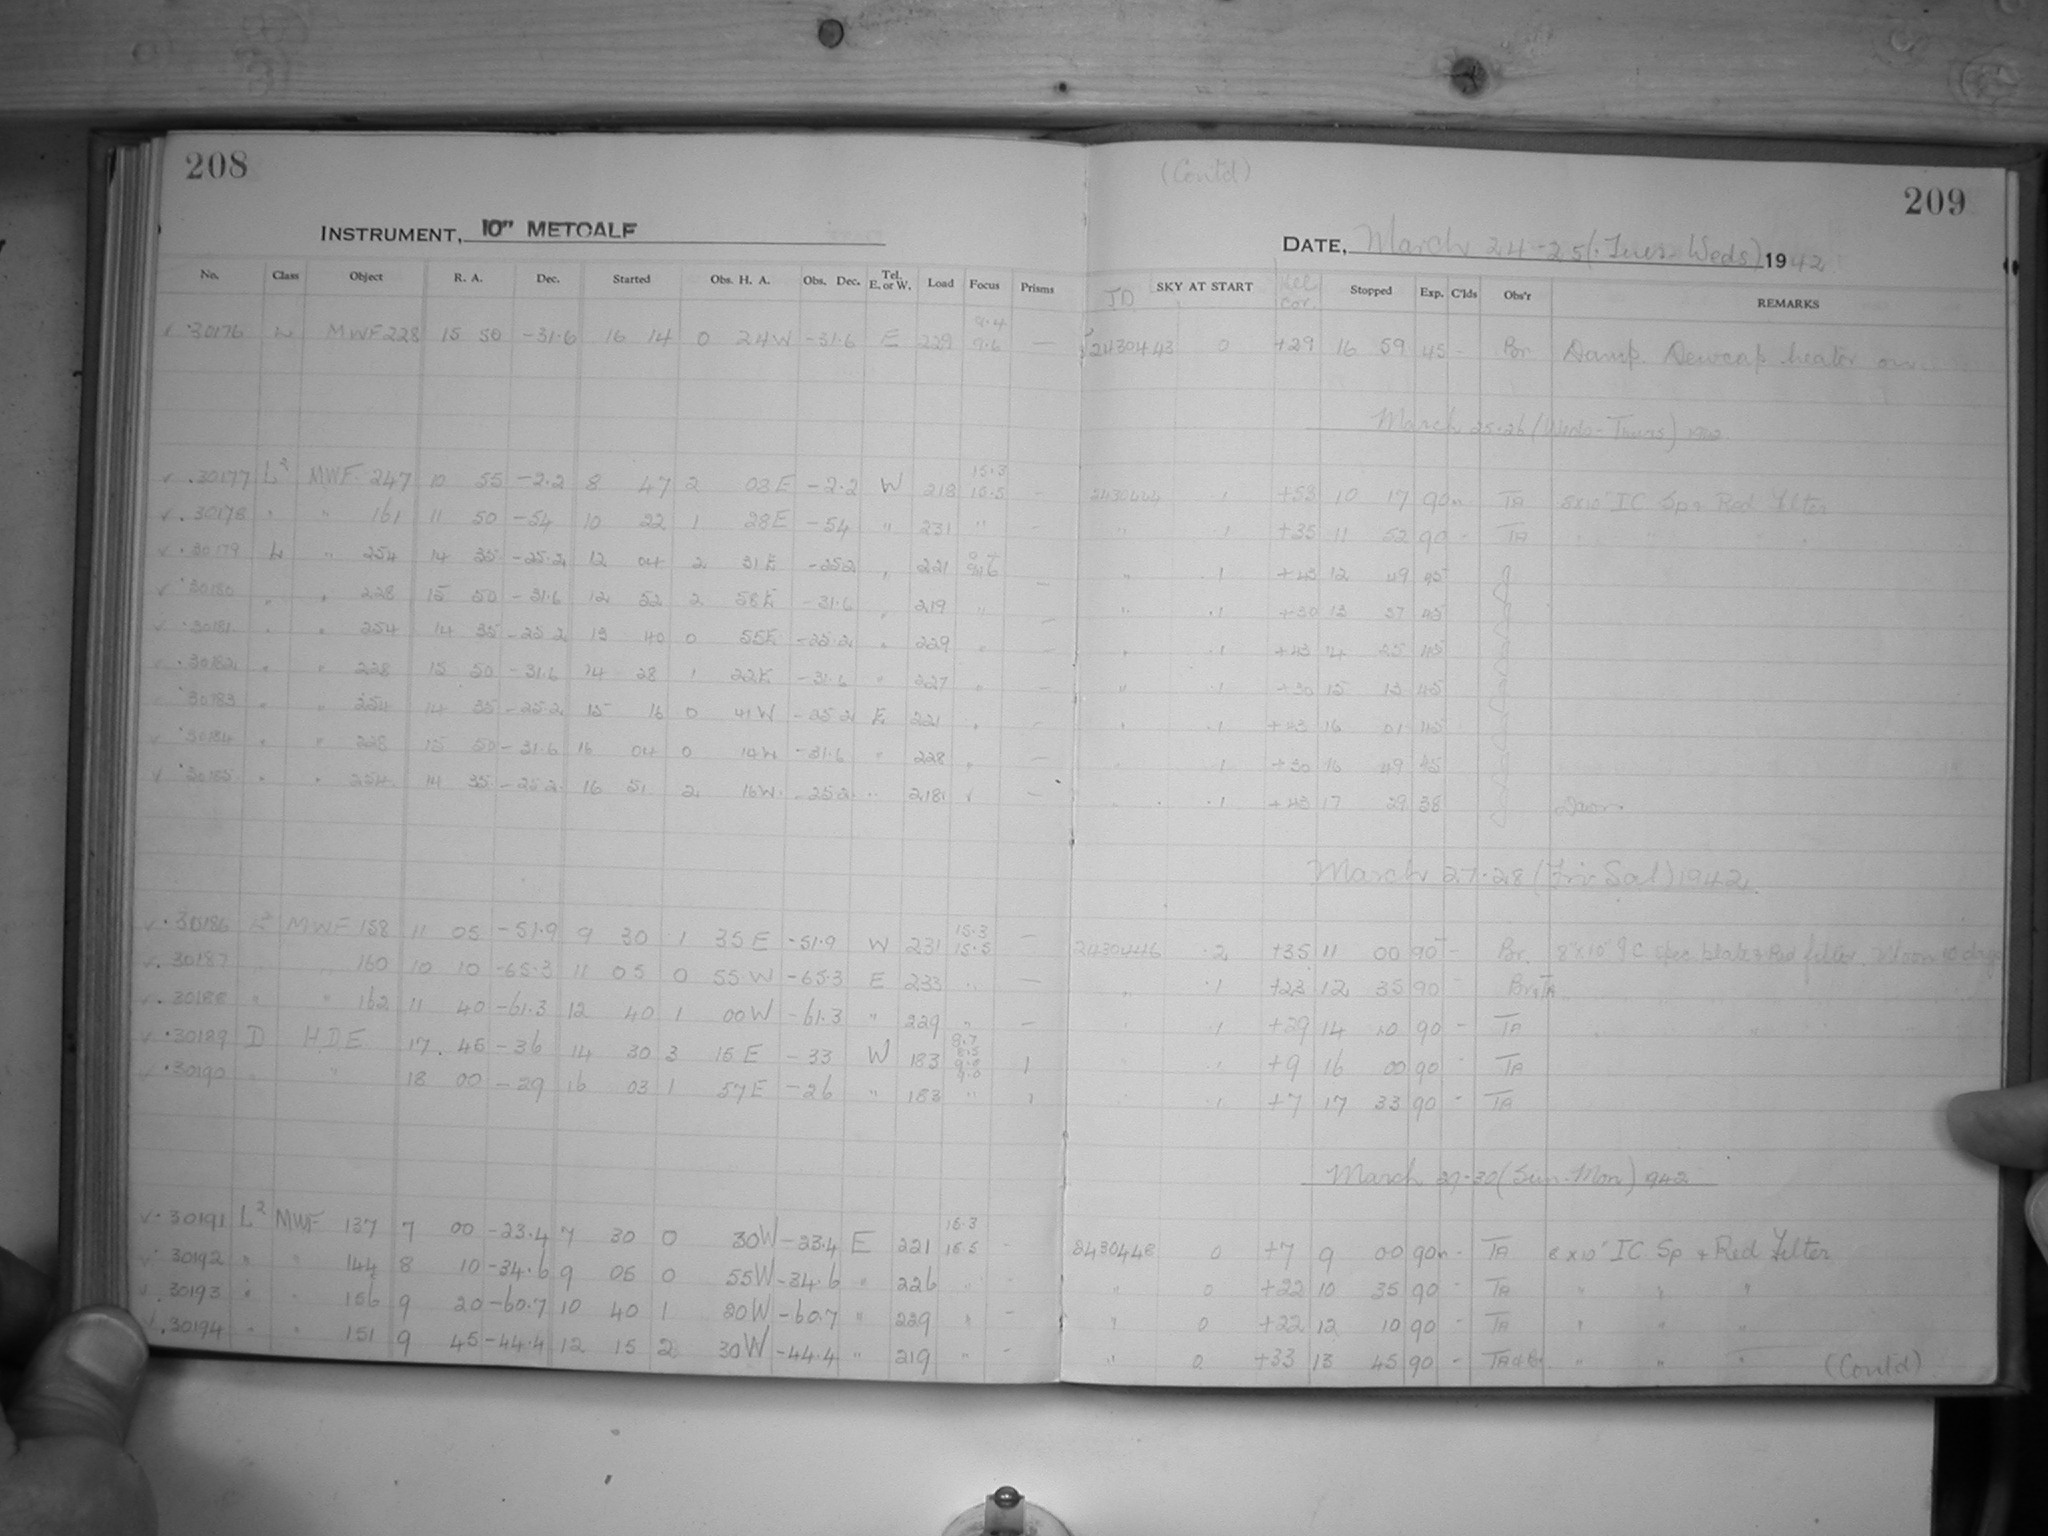 208
(Contd)
209
INSTRUMENT, 10" METCALF
DATE, March 24-25 (Tues-Weds) 1942
No. Class Object R. A. Dec. Started Obs. H. A. Obs. Dec. Tel. E. or W. Load Focus Prisms JD SKY AT START Hel cor. Stopped Exp. C'lds Obs'r REMARKS
30176 L MWF 228 15 50 -31.6 16 14 0 24W -31.6 E 229 9.4 9.6 — 2430443 0 +29 16 59 45 - Br Damp. Dewcap heater on.
March 25-26 (Weds-Thurs) 1942
30177 L2 MWF 247 10 55 -2.2 8 47 2 03E -2.2 W 218 15.3 15.5 - 2430444 1 +53 10 17 90 - TA 8x10" IC Sp + Red Filter
30178 " " 161 11 50 -54 10 22 1 28E -54 " 231 " - " 1 +35 11 52 90 - TA " " "
30179 L " 254 14 35 -25.2 12 04 2 31E -25.2 " 221 9.6 - " 1 +43 12 49 45
30180 " " 228 15 50 -31.6 12 52 2 58E -31.6 " 219 " - " 1 +30 13 37 45
30181 " " 254 14 35 -25.2 13 40 0 55E -25.2 " 229 " - " 1 +43 14 25 45
30182 " " 228 15 50 -31.6 14 28 1 22E -31.6 " 227 " - " 1 +30 15 13 45
30183 " " 254 14 35 -25.2 15 16 0 41W -25.2 E 221 " - " 1 +43 16 01 45
30184 " " 228 15 50 -31.6 16 04 0 14W -31.6 " 228 " - " 1 +30 16 49 45
30185 " " 254 14 35 -25.2 16 51 2 16W -25.2 " 218 " - " 1 +43 17 29 38 Dawn.
March 27-28 (Fri-Sat) 1942
30186 L2 MWF 158 11 05 -51.9 9 30 1 35E -51.9 W 231 15.3 15.5 — 2430446 2 +35 11 00 90 - Br. 8"x10" IC Spec. plate & Red filter. Moon 10 days
30187 " " 160 10 10 -65.3 11 05 0 55W -65.3 E 233 " — " 1 +23 12 35 90 - Br & TA
30188 " " 162 11 40 -61.3 12 40 1 00W -61.3 " 229 " - " 1 +29 14 10 90 - TA
30189 D HDE 17 45 -36 14 30 3 15E -33 W 183 1 " 1 +9 16 00 90 TA
30190 " " 18 00 -29 16 03 1 57E -26 " 183 " 1 " 1 +7 17 33 90 - TA
March 29-30 (Sun-Mon) 1942
30191 L2 MWF 137 7 00 -23.4 7 30 0 30W -23.4 E 221 15.3 15.5 - 2430448 0 +7 9 00 90 - TA 8x10" IC Sp + Red Filter
30192 " " 144 8 10 -34.6 9 05 0 55W -34.6 " 226 " - " 0 +22 10 35 90 - TA " " "
30193 " " 156 9 20 -60.7 10 40 1 20W -60.7 " 229 " - " 0 +22 12 10 90 - TA " " "
30194 " " 151 9 45 -44.4 12 15 2 30W -44.4 " 219 " - " 0 +33 13 45 90 - TA & Br " " "
(Contd)